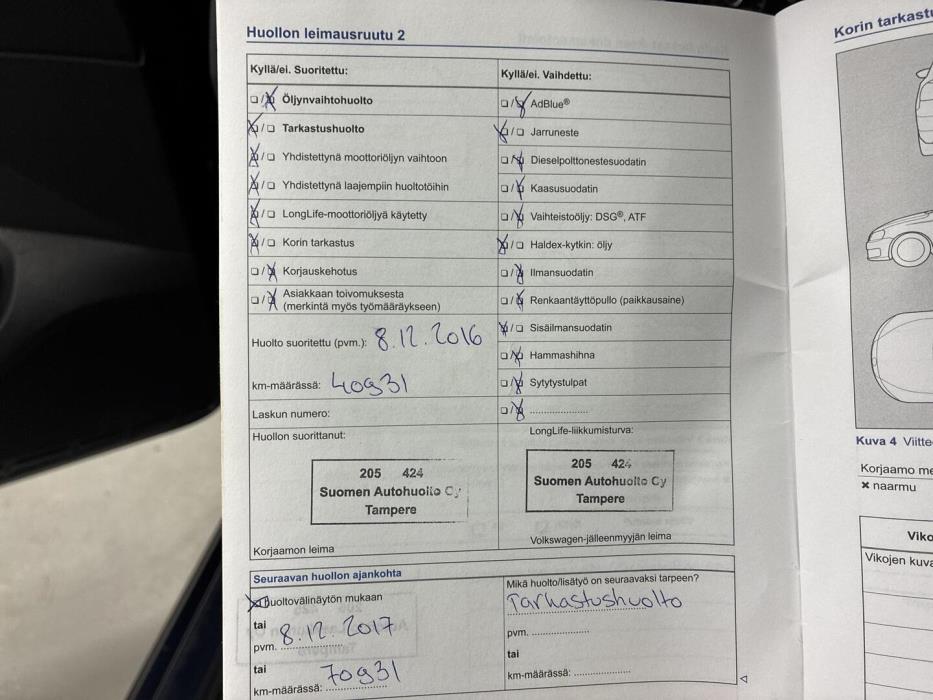 Huollon leimausruutu 2
Kyllä/ei. Suoritettu:
Öljynvaihtohuolto
Tarkastushuolto
Yhdistettynä moottoriöljyn vaihtoon
Yhdistettynä laajempiin huoltotöihin
LongLife-moottoriöljyä käytetty
Korin tarkastus
Korjauskehotus
Asiakkaan toivomuksesta
(merkintä myös työmääräykseen)
Huolto suoritettu (pvm.): 8.12.2016
km-määrässä: 40931
Laskun numero:
Huollon suorittanut:
205 424
Suomen Autohuolto Oy
Tampere
Korjaamon leima
Kyllä/ei. Vaihdettu:
AdBlue®
Jarruneste
Dieselpolttonestesuodatin
Kaasusuodatin
Vaihteistoöljy: DSG®, ATF
Haldex-kytkin: öljy
Ilmansuodatin
Renkaantäyttöpullo (paikkausaine)
Sisäilmansuodatin
Hammashihna
Sytytystulpat
LongLife-liikkumisturva:
205 424
Suomen Autohuolto Oy
Tampere
Volkswagen-jälleenmyyjän leima
Seuraavan huollon ajankohta
Huoltovälinäytön mukaan
tai
pvm. 8.12.2017
tai
km-määrässä: 70931
Mikä huolto/lisätyö on seuraavaksi tarpeen?
Tarkastushuolto
pvm.
tai
km-määrässä:
Korin tarkast
Kuva 4 Viitte
Korjaamo me
× naarmu
Viko
Vikojen kuva